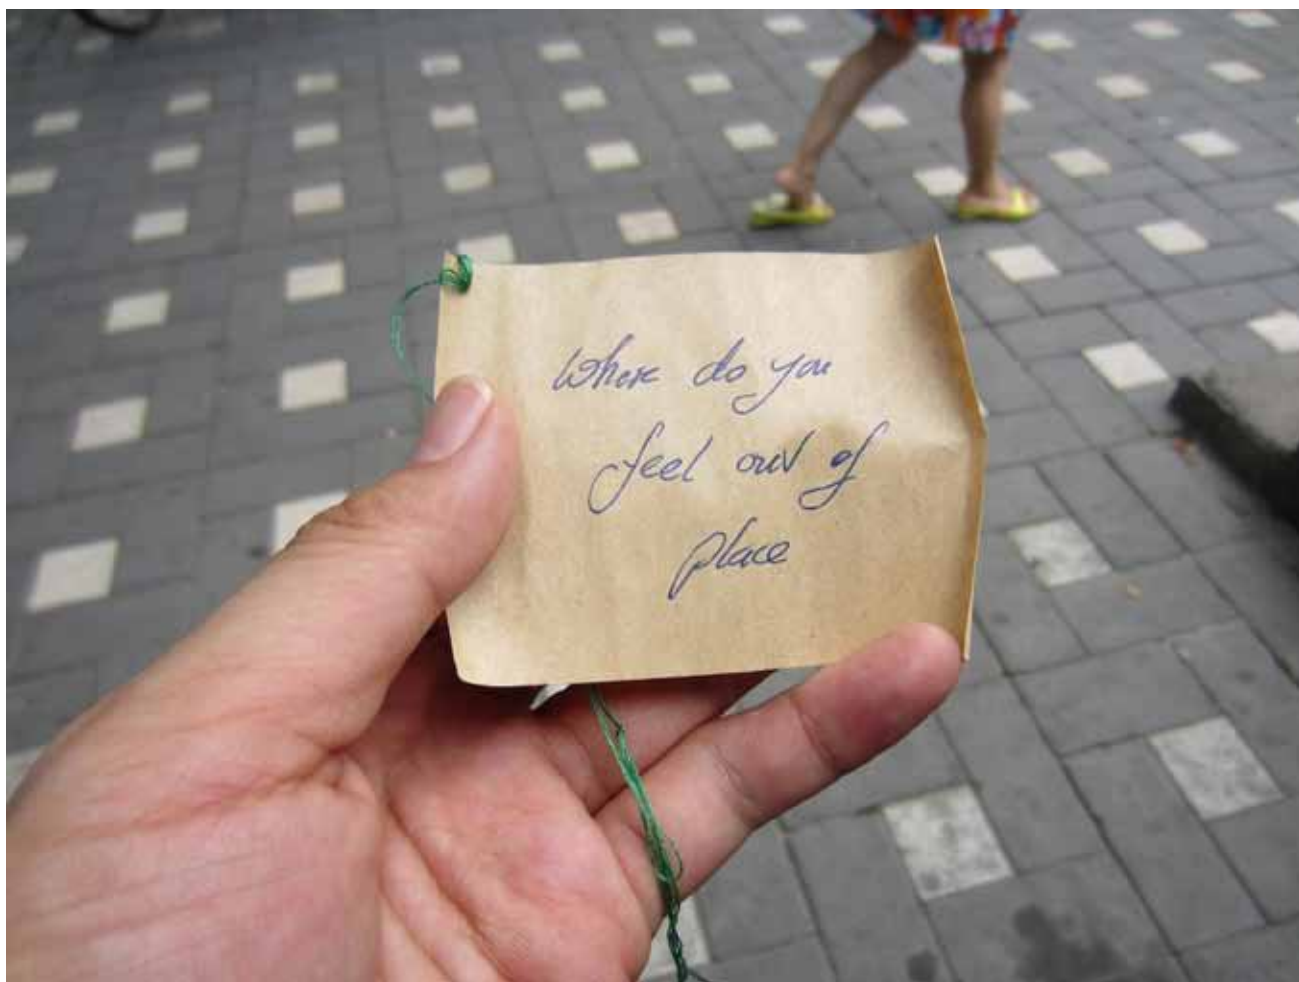 Where do you
feel out of
place